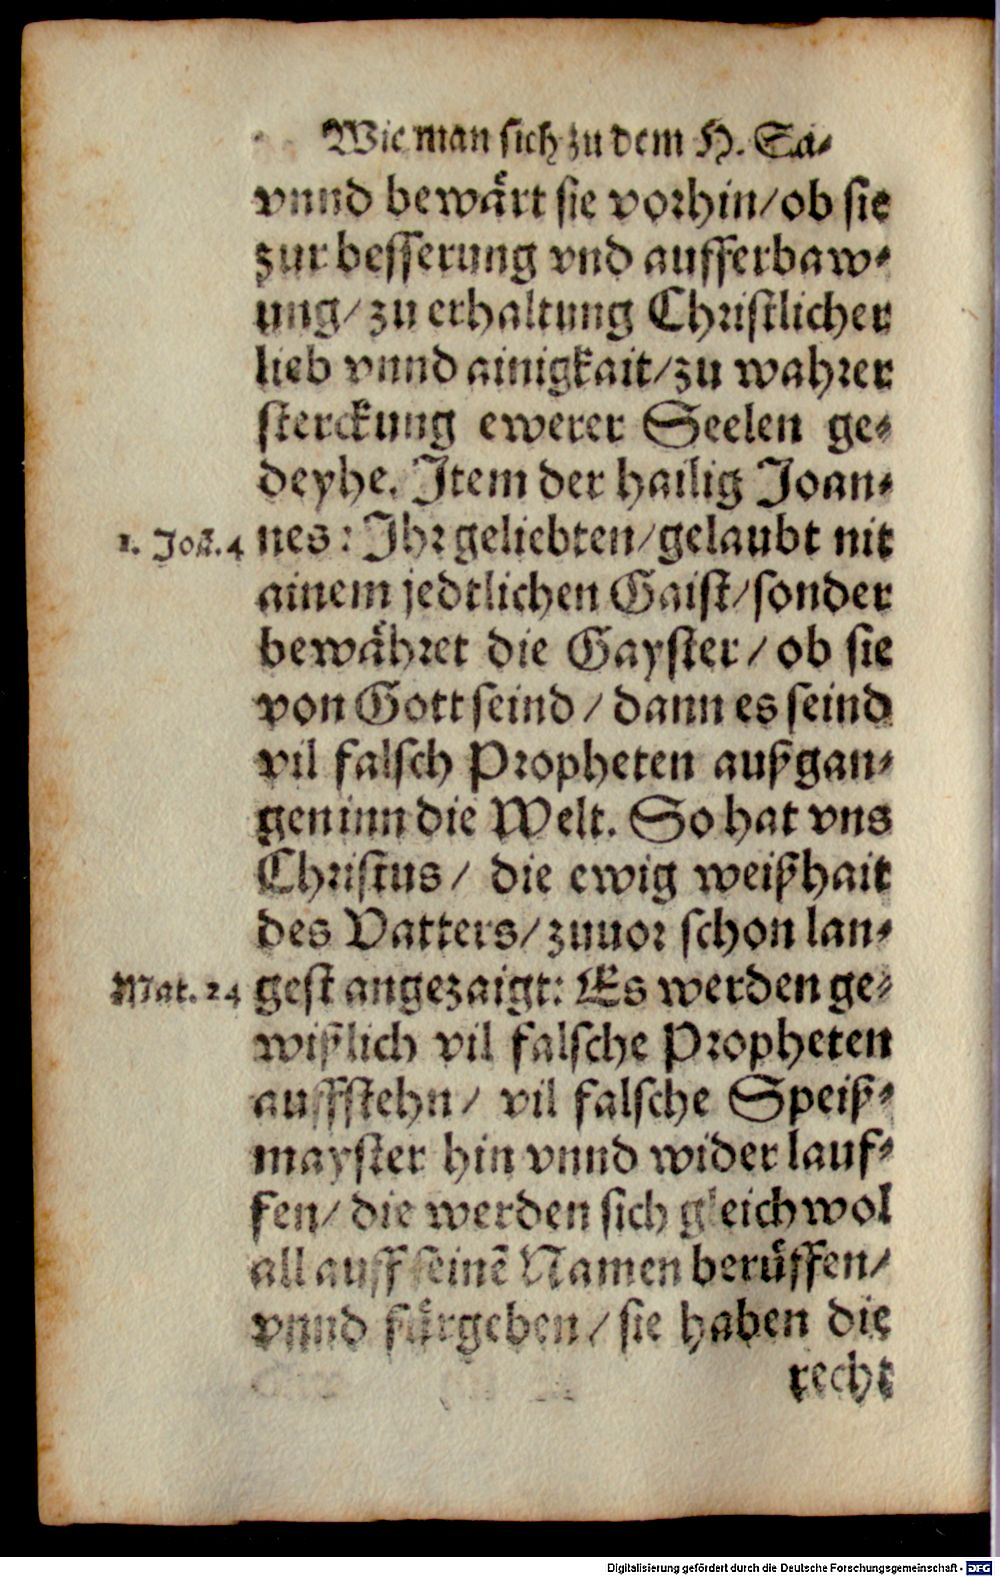 Wie man sich zu dem H. Sa-
vnnd bewärt sie vorhin/ ob sie
zur besserung vnd aufferbaw-
ung/ zu erhaltung Christlicher
lieb vnnd ainigkait/ zu wahrer
sterckung ewerer Seelen ge-
deyhe. Item der hailig Joan-
1. Joh. 4 nes: Ihr geliebten/ gelaubt nit
ainem jedtlichen Gaist/ sonder
bewähret die Gayster/ ob sie
von Gott seind/ dann es seind
vil falsch Propheten außgan-
gen inn die Welt. So hat vns
Christus/ die ewig weißhait
des Vatters/ zuuor schon lan-
Mat. 24 gest angezaigt: Es werden ge-
wißlich vil falsche Propheten
auffstehn/ vil falsche Speiß-
mayster hin vnnd wider lauf-
fen/ die werden sich gleichwol
all auff seinē Namen berüffen/
vnnd fürgeben/ sie haben die
recht
Digitalisierung gefördert durch die Deutsche Forschungsgemeinschaft - DFG